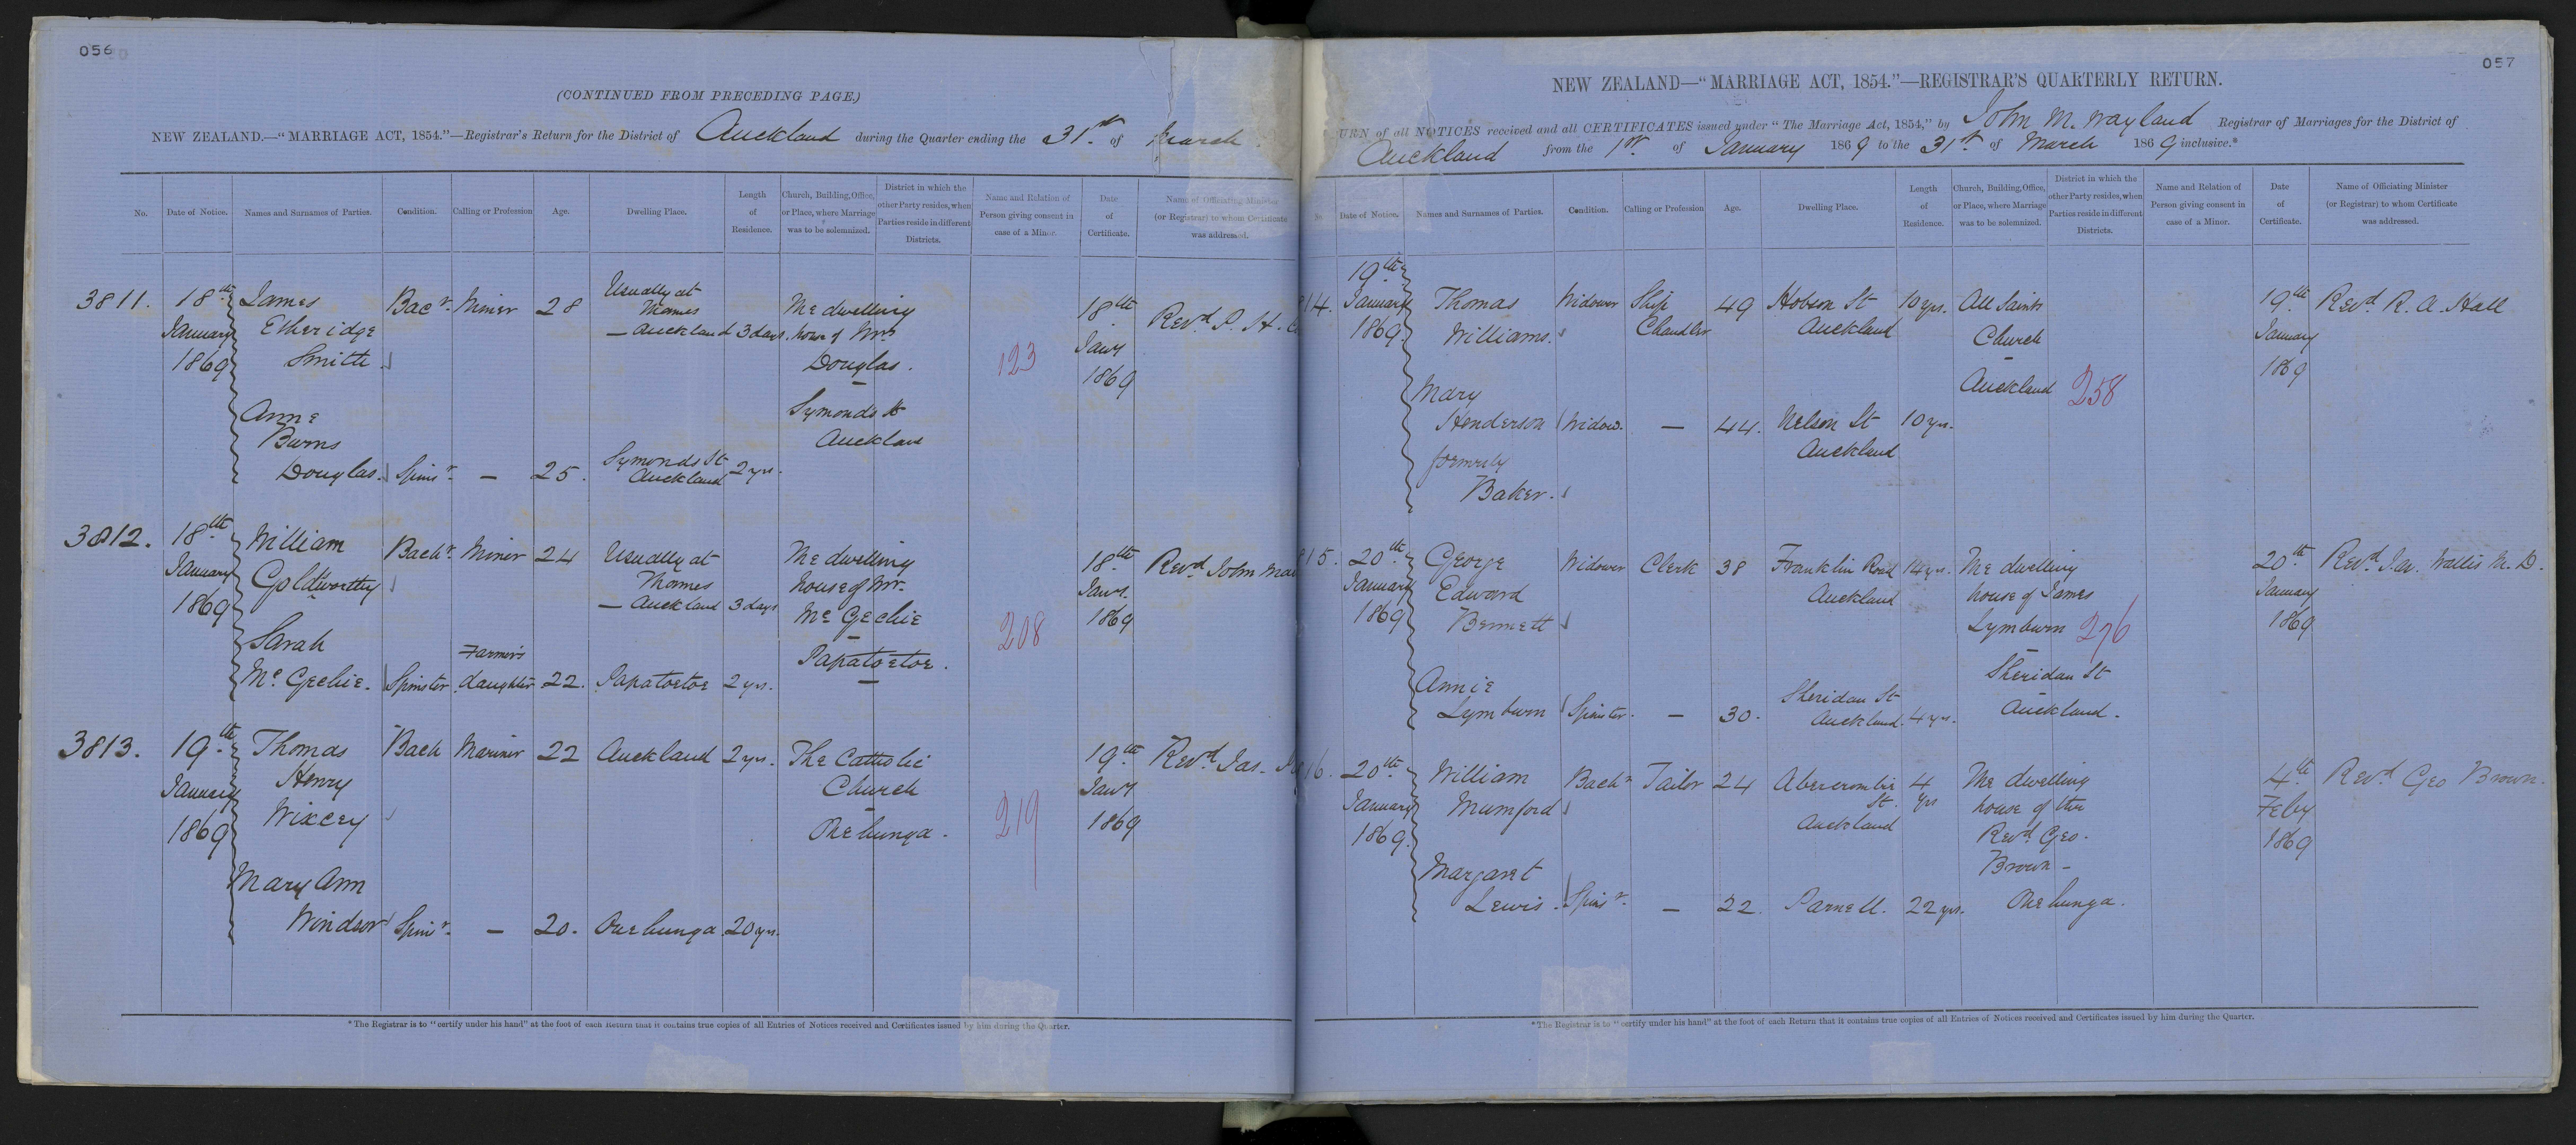 056
(CONTINUED FROM PRECEDING PAGE.)
NEW ZEALAND.—"MARRIAGE ACT, 1854."—Registrar's Return for the District of Auckland during the Quarter ending the 31st of March
No.
Date of Notice.
Names and Surnames of Parties.
Condition.
Calling or Profession
Age.
Dwelling Place.
Length
of
Residence.
Church, Building, Office,
or Place, where Marriage
was to be solemnized.
District in which the
other Party resides, when
Parties reside in different
Districts.
Name and Relation of
Person giving consent in
case of a Minor.
Date
of
Certificate.
Name of Officiating Minister
(or Registrar) to whom Certificate
was addressed.
3811.
18th
January
1869
James
Etheridge
Smith
Bacr
Miner
28
Usually at
Thames
— Auckland
3 days.
The dwelling
house of Mrs
Douglas.
Symonds St
Auckland
123
18th
Jany
1869
Revd P. H.
Anne
Burns
Douglas.
Spinr
—
25.
Symonds St
Auckland
2 yrs.
3812.
18th
January
1869
William
Goldworthy
Bachr
Miner
24
Usually at
Thames
— Auckland
3 days
The dwelling
house of Mr.
Mc Gechie
Papatoetoe.
208
18th
Jany.
1869
Revd John
Sarah
Mc Gechie.
Spinster
Farmer's
daughter
22.
Papatoetoe
2 yrs.
3813.
19th
January
1869
Thomas
Henry
Wixcey
Bach
Mariner
22
Auckland
2 yrs.
The Catholic
Church
Onehunga.
219
19th
Jany
1869
Revd Jas.
Mary Ann
Windsor
Spinr
—
20.
Onehunga
20 yrs.
*The Registrar is to "certify under his hand" at the foot of each Return that it contains true copies of all Entries of Notices received and Certificates issued by him during the Quarter.
057
NEW ZEALAND—"MARRIAGE ACT, 1854."—REGISTRAR'S QUARTERLY RETURN.
URN of all NOTICES received and all CERTIFICATES issued under "The Marriage Act, 1854," by John M. Wayland Registrar of Marriages for the District of
Auckland from the 1st of January 1869 to the 31st of March 1869 inclusive.*
Date of Notice.
Names and Surnames of Parties.
Condition.
Calling or Profession
Age.
Dwelling Place.
Length
of
Residence.
Church, Building, Office,
or Place, where Marriage
was to be solemnized.
District in which the
other Party resides, when
Parties reside in different
Districts.
Name and Relation of
Person giving consent in
case of a Minor.
Date
of
Certificate.
Name of Officiating Minister
(or Registrar) to whom Certificate
was addressed.
14.
19th
January
1869.
Thomas
Williams.
Widower
Ship
Chandler
49
Hobson St
Auckland
10 yrs.
All Saints
Church
Auckland
258
19th
January
1869
Revd R. A. Hall
Mary
Henderson
formerly
Baker.
Widow.
—
44.
Nelson St
Auckland
10 yrs.
15.
20th
January
1869
George
Edward
Bennett
Widower
Clerk
38
Franklin Road
Auckland
14 yrs.
The dwelling
house of James
Lymburn
Sheridan St
Auckland.
276
20th
January
1869
Revd Ja. Wallis M. D.
Annie
Lymburn
Spinster.
—
30.
Sheridan St
Auckland.
4 yrs.
16.
20th
January
1869.
William
Mumford
Bachr
Tailor
24
Abercrombie
St.
Auckland
4
yrs
The dwelling
house of the
Revd Geo.
Brown —
Onehunga.
4th
Feby
1869
Revd Geo Brown.
Margaret
Lewis.
Spinr.
—
22.
Parnell.
22 yrs.
*The Registrar is to "certify under his hand" at the foot of each Return that it contains true copies of all Entries of Notices received and Certificates issued by him during the Quarter.